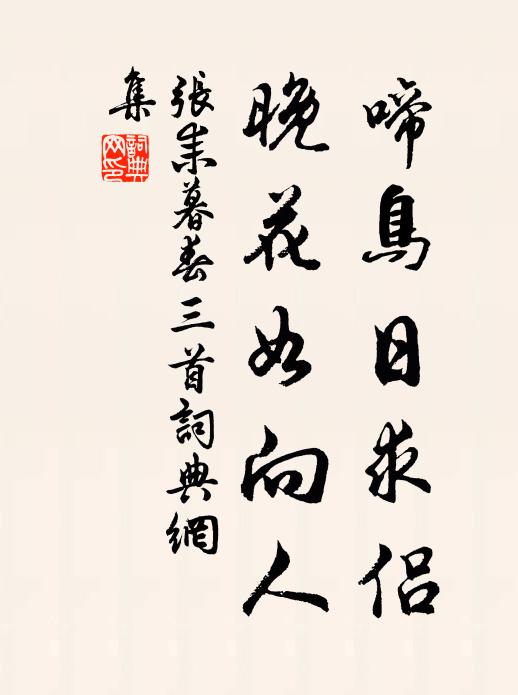 啼鳥日求侶
晚花如向人
張耒暮春三首詞典網
集
詞典網印